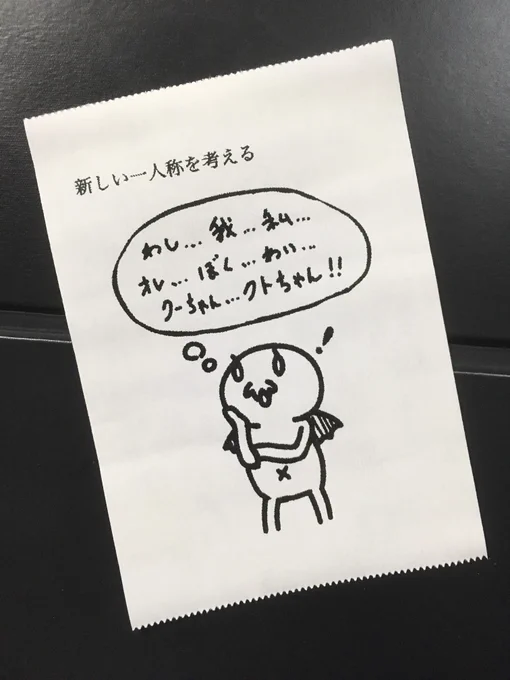 新しい一人称を考える
わし...我...私...
オレ...ぼく...わい...
クーちゃん...クトちゃん!!
!